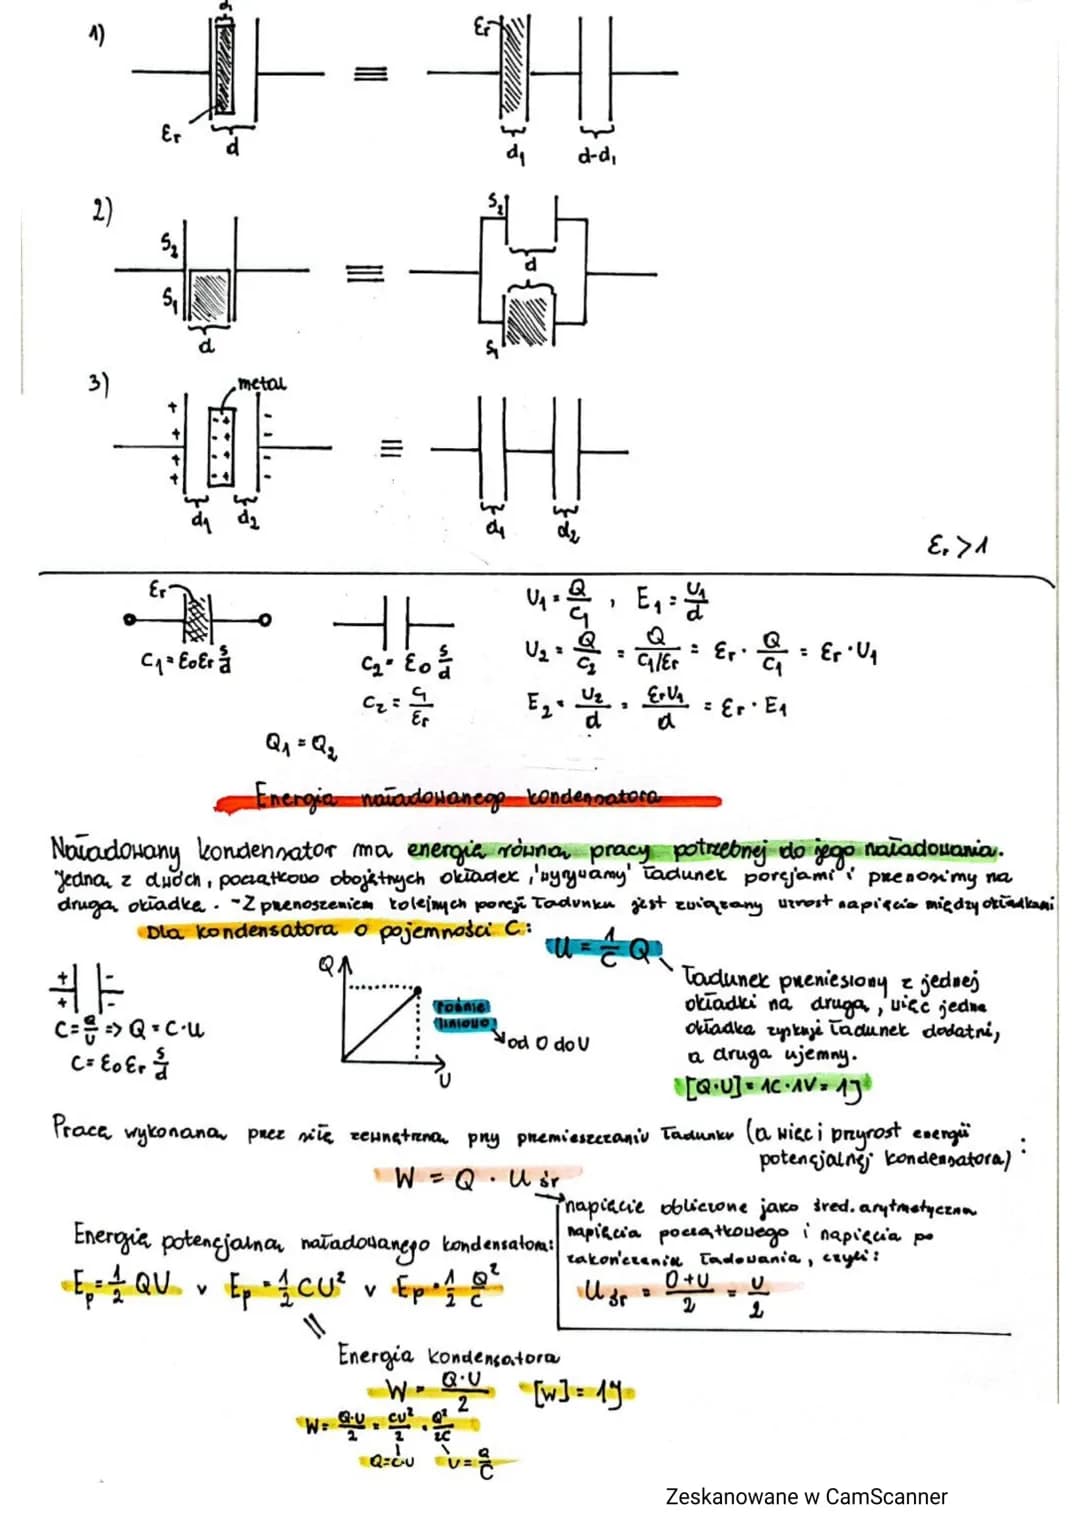 1)
d₁
εr
d
≡
εr
d₁
d-d₁
2)
S₂
S₁
d
≡
S₂
d
S₁
3)
metal
d₁ d₂
≡
d₁ d₂
εr >1
εr
C₁ = ε₀εr S/d
C₂ = ε₀ S/d
C₂ = C₁/εr
Q₁ = Q₂
U₁ = Q/C₁ , E₁ = U₁/d
U₂ = Q/C₂ = Q/C₁/εr = εr · Q/C₁ = εr · U₁
E₂ = U₂/d = εrU₁/d = εr · E₁
Energia naładowanego kondensatora
Naładowany kondensator ma energię równą pracy potrzebnej do jego naładowania.
Jedną z dwóch, początkowo obojętnych okładek, "wyrywamy" ładunek porcjami i przenosimy na
drugą okładkę. - Z przenoszeniem kolejnych porcji ładunku jest związany wzrost napięcia między okładkami
Dla kondensatora o pojemności C:
U = 1/C Q
C = Q/U => Q = C·U
C = ε₀εr S/d
Q
U
rośnie
liniowo
od 0 do U
Ładunek przeniesiony z jednej
okładki na drugą, więc jedna
okładka zyskuje ładunek dodatni,
a druga ujemny.
[Q·U] = 1C·1V = 1J
Pracę wykonaną przez siłę zewnętrzną przy przemieszczaniu ładunku (a więc i przyrost energii
potencjalnej kondensatora):
W = Q · U śr
napięcie obliczone jako śred. arytmetyczna
napięcia początkowego i napięcia po
zakończeniu ładowania, czyli:
U śr = 0+U/2 = U/2
Energia potencjalna naładowanego kondensatora:
Ep = 1/2 QU v Ep = 1/2 CU² v Ep = 1/2 Q²/C
Energia kondensatora
W = Q·U/2 [W] = 1J
W = Q·U/2 = CU²/2 = Q²/2C
Q=C·U U = Q/C
Zeskanowane w CamScanner